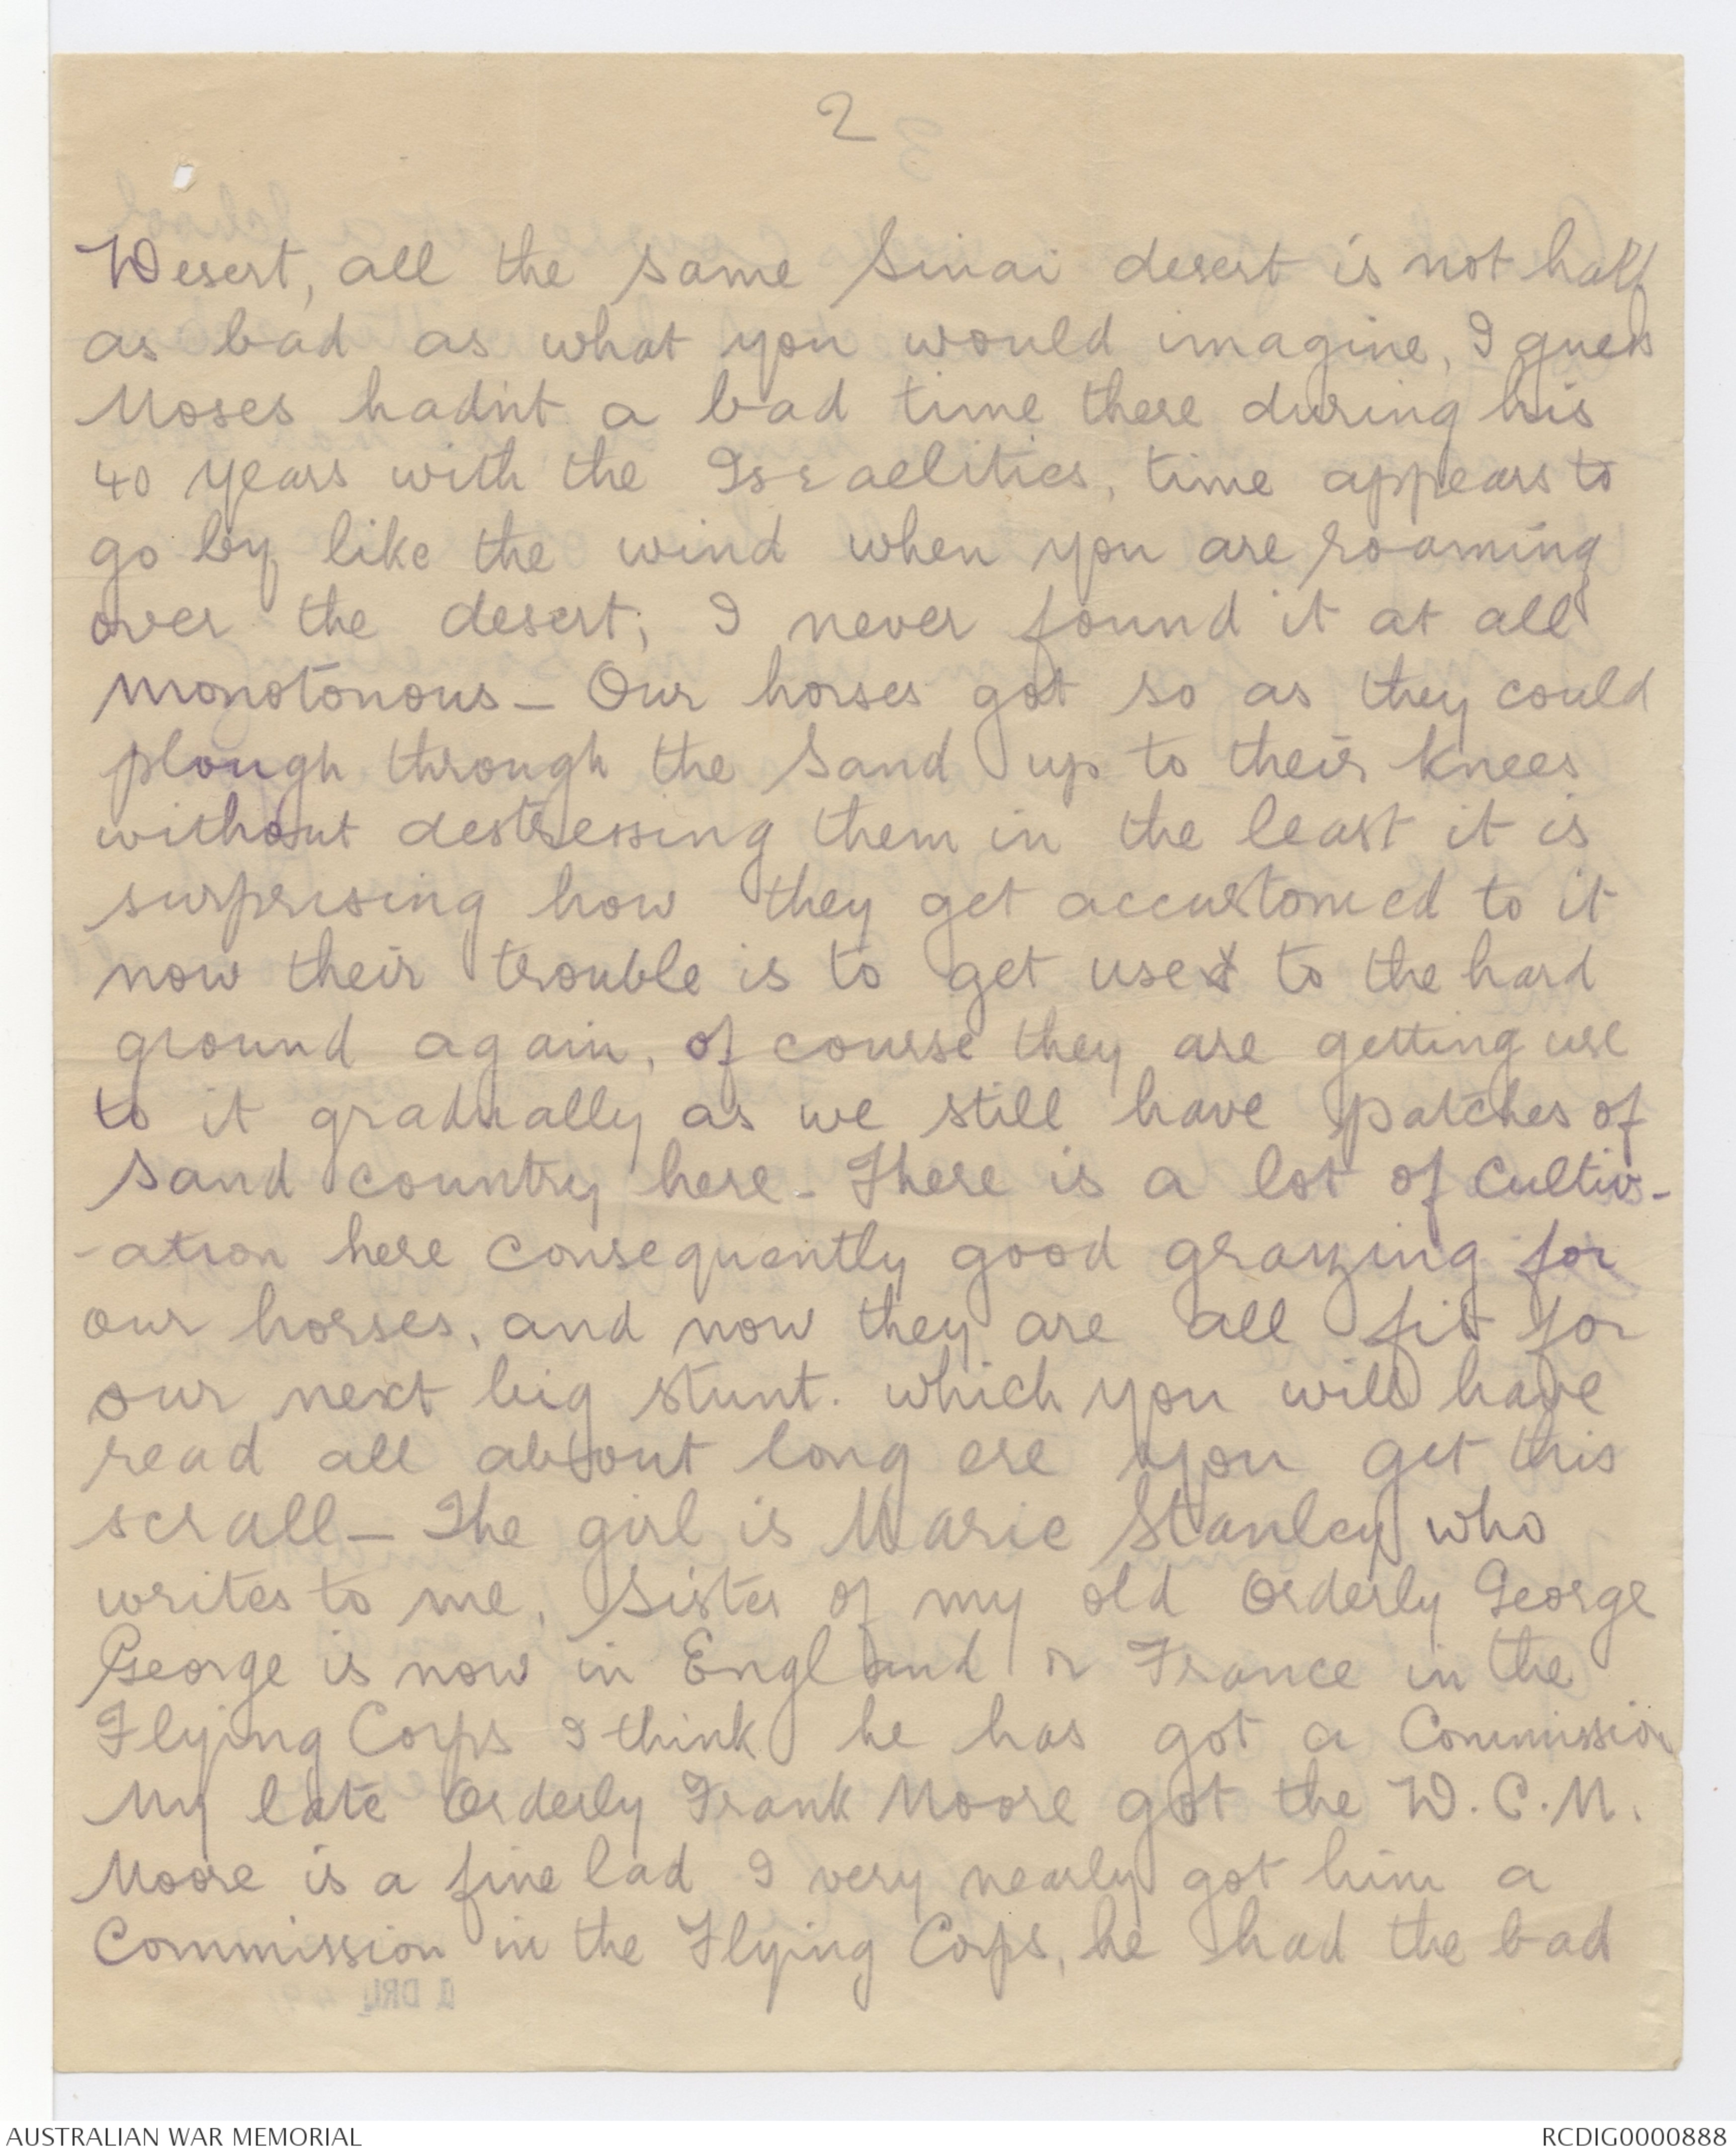 2
Desert, all the same Sinai desert is not half
as bad as what you would imagine, I guess
Moses hadn't a bad time there during his
40 years with the Israelities, time appears to
go by like the wind when you are roaming
over the desert; I never found it at all
monotonous - Our horses got so as they could
plough through the sand up to their knees
without destressing them in the least it is
surprising how they get accustomed to it
now their trouble is to get used to the hard
ground again, of course they are getting use
to it gradually as we still have patches of
sand country here - There is a lot of cultiv-
-ation here consequently good grazing for
our horses, and now they are all fit for
our next big stunt. which you will have
read all about long ere you get this
scrall - The girl is Marie Stanley who
writes to me, Sister of my old Orderly George
George is now in England or France in the
Flying Corps I think he has got a Commission
My late Orderly Frank Moore got the D.C.M.
Moore is a fine lad I very nearly got him a
Commission in the Flying Corps, he had the bad
AUSTRALIAN WAR MEMORIAL
RCDIG0000888